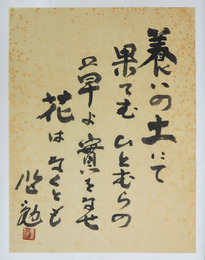 養いの土にて
果てむひとむらの
草よ實をなせ
花はなくとも